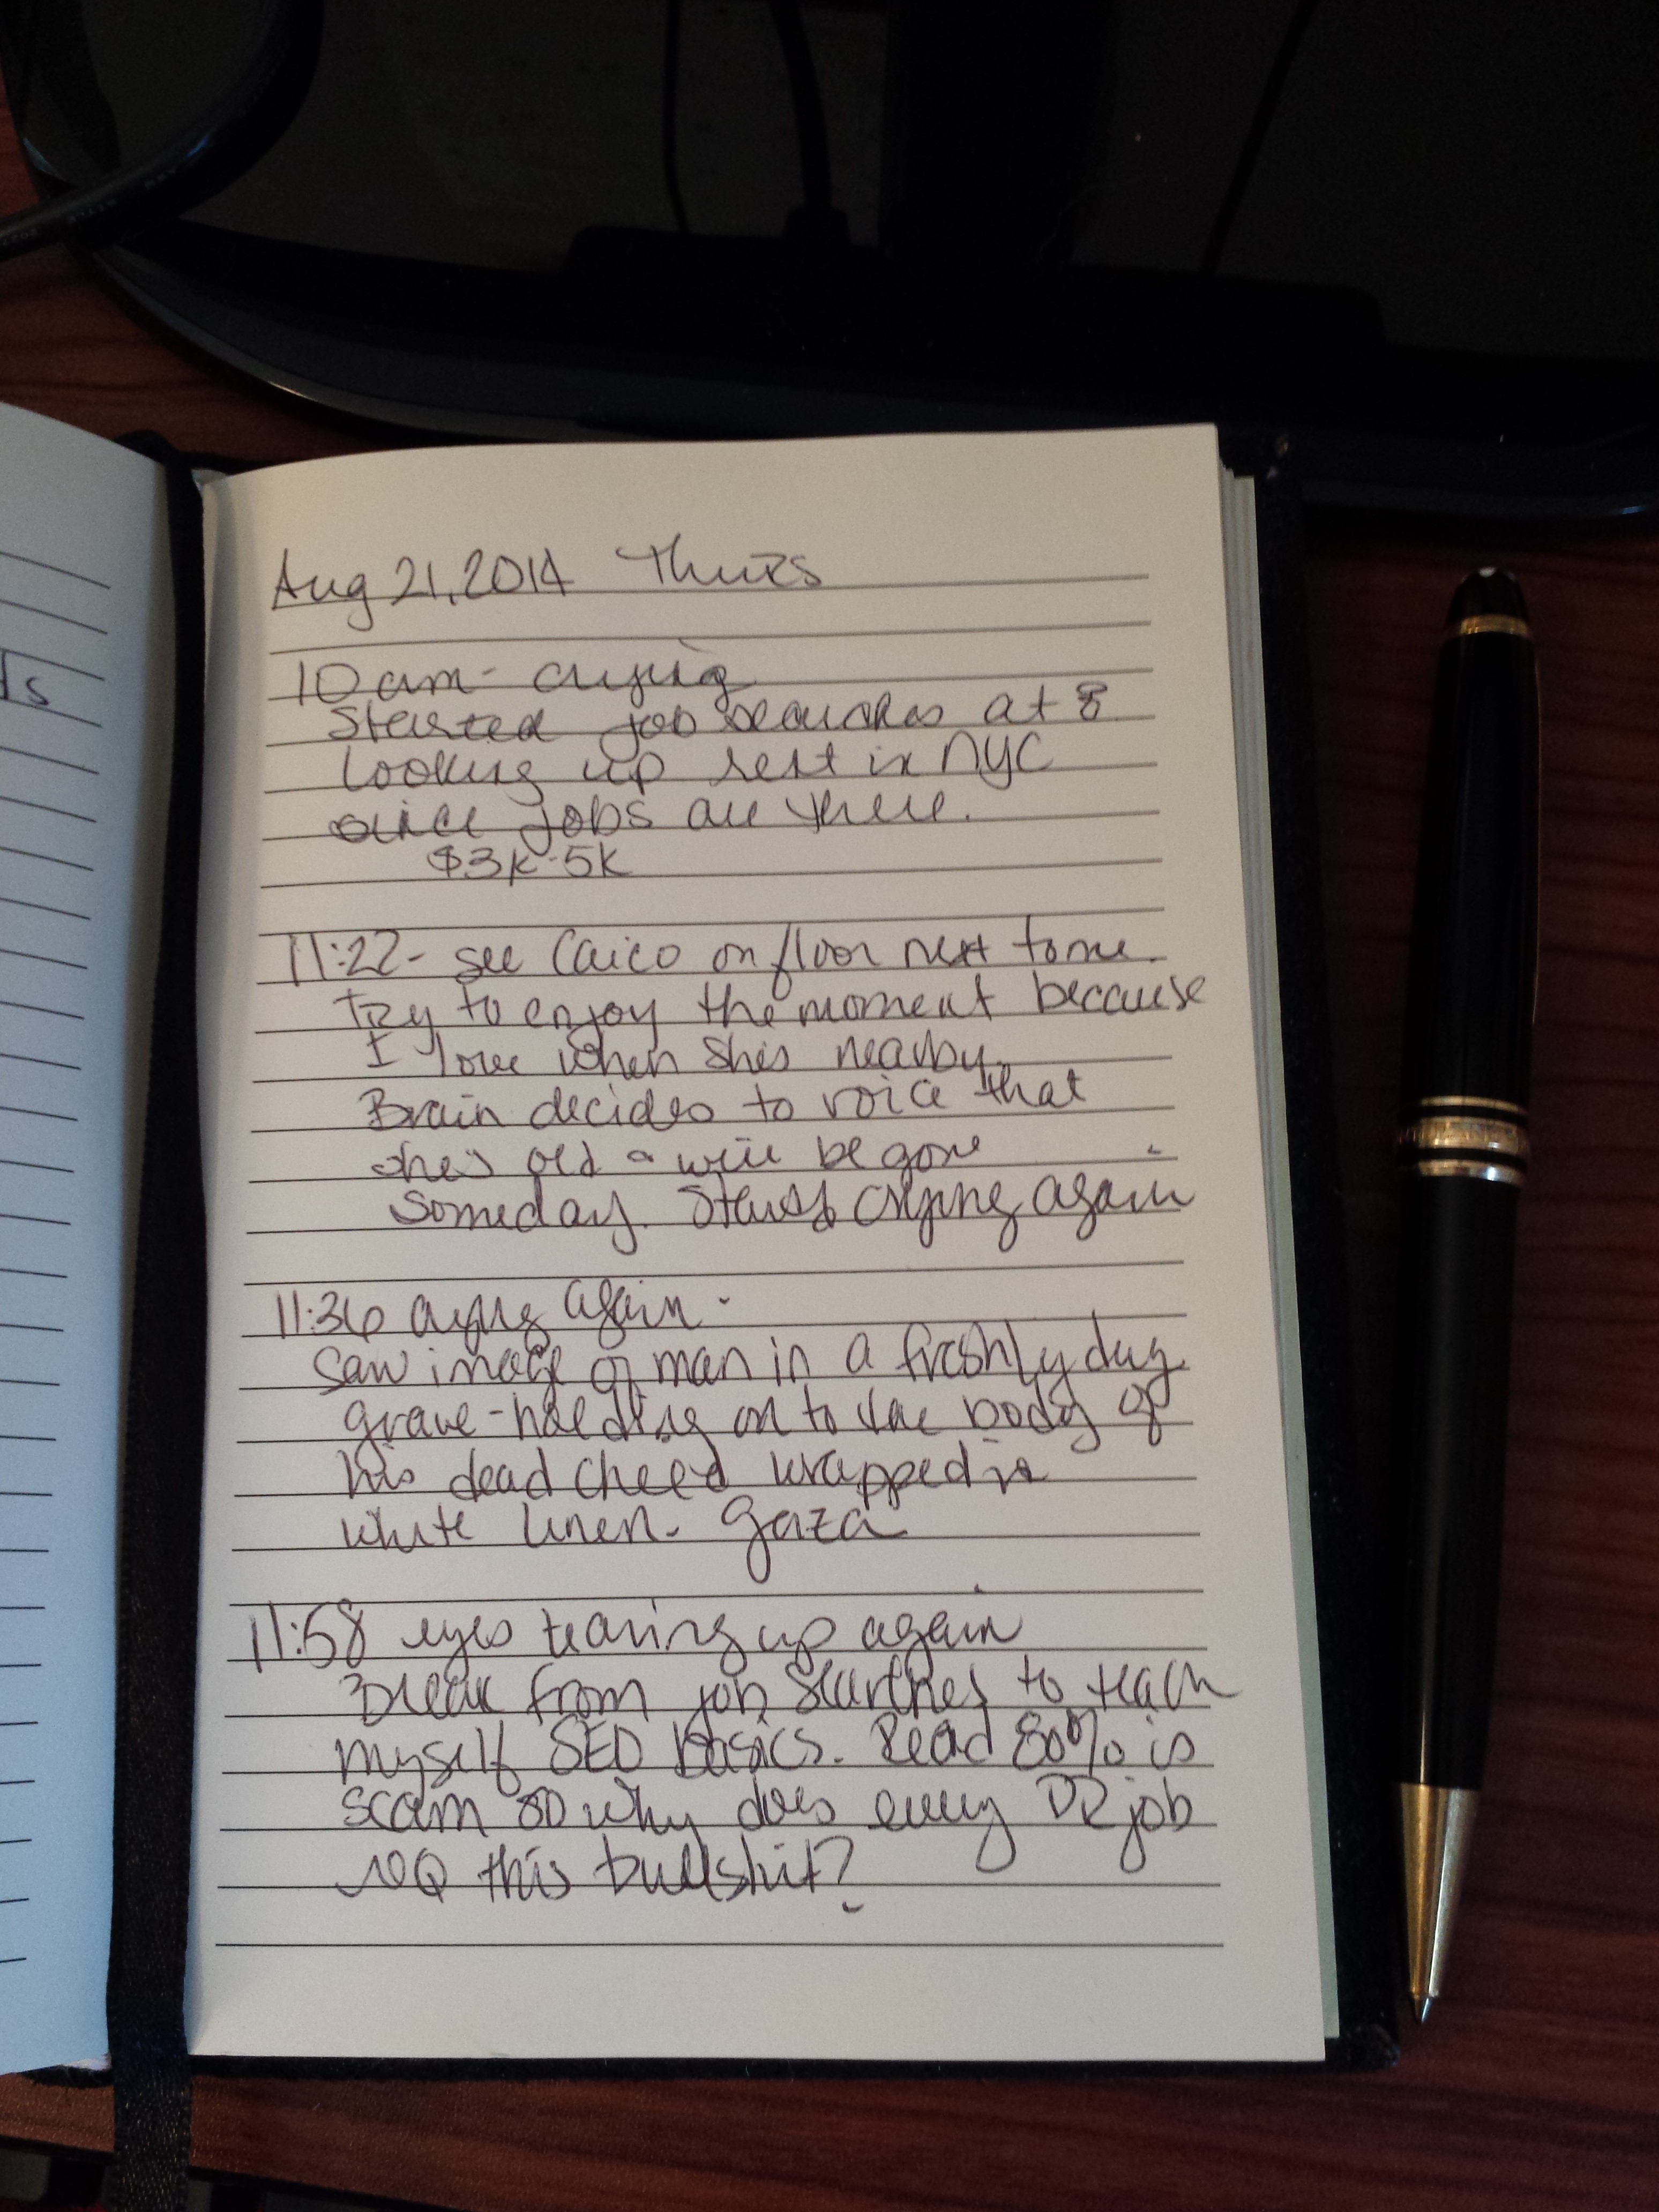 ls
Aug 21, 2014 Thurs
10am - crying
Started job searches at 8
Looking up rent in NYC
since jobs are there.
$3k-5k
11:22- see Caico on floor next to me.
Try to enjoy the moment because
I love when shes nearby.
Brain decides to voice that
she's old & will be gone
someday. Starts crying again
11:36 crying again -
Saw image of man in a freshly dug
grave - holding on to the body of
his dead child wrapped in
white linen - Gaza
11:58 eyes tearing up again
Break from job searches to teach
myself SEO basics. Read 80% is
scam so why does every PR job
REQ this bullshit?